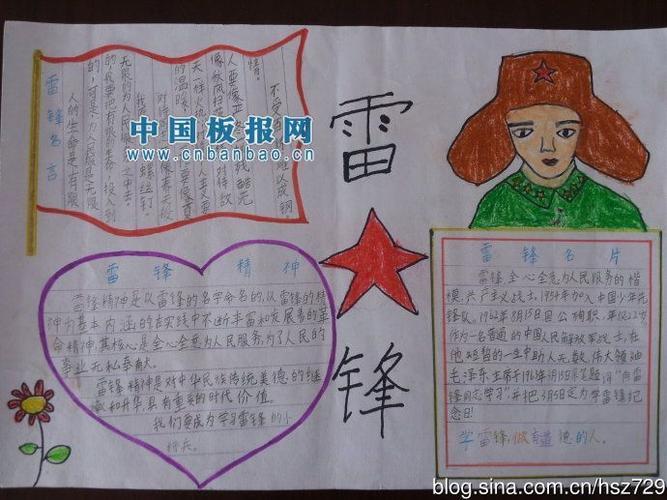 雷锋名言
人的生命是有限
的,可是,为人民服务是无限
的,我要把有限的生命,投入到
无限的为人民服务之中去。
中国板报网
www.cnbanbao.cn
雷
锋
雷锋精神
雷锋精神是以雷锋的名字命名的,以雷锋的精
神为基本内涵的在实践中不断丰富和发展着的革
命精神,其核心是全心全意为人民服务,为了人民的
事业无私奉献。
雷锋精神是对中华民族传统美德的继
承和升华,具有重要的时代价值。
我们要成为学习雷锋的小
标兵。
雷锋名片
雷锋,全心全意为人民服务的楷
模,共产主义战士,1954年加入中国少年先
锋队,1962年8月15日因公殉职,年仅22岁
作为一名普通的中国人民解放军战士,在
他短暂的一生中助人无数,伟大领袖
毛泽东主席于1963年3月5日亲笔题词“向雷
锋同志学习”,并把3月5日定为学雷锋纪
念日!
学雷锋,做有道德的人。
blog.sina.com.cn/hsz729